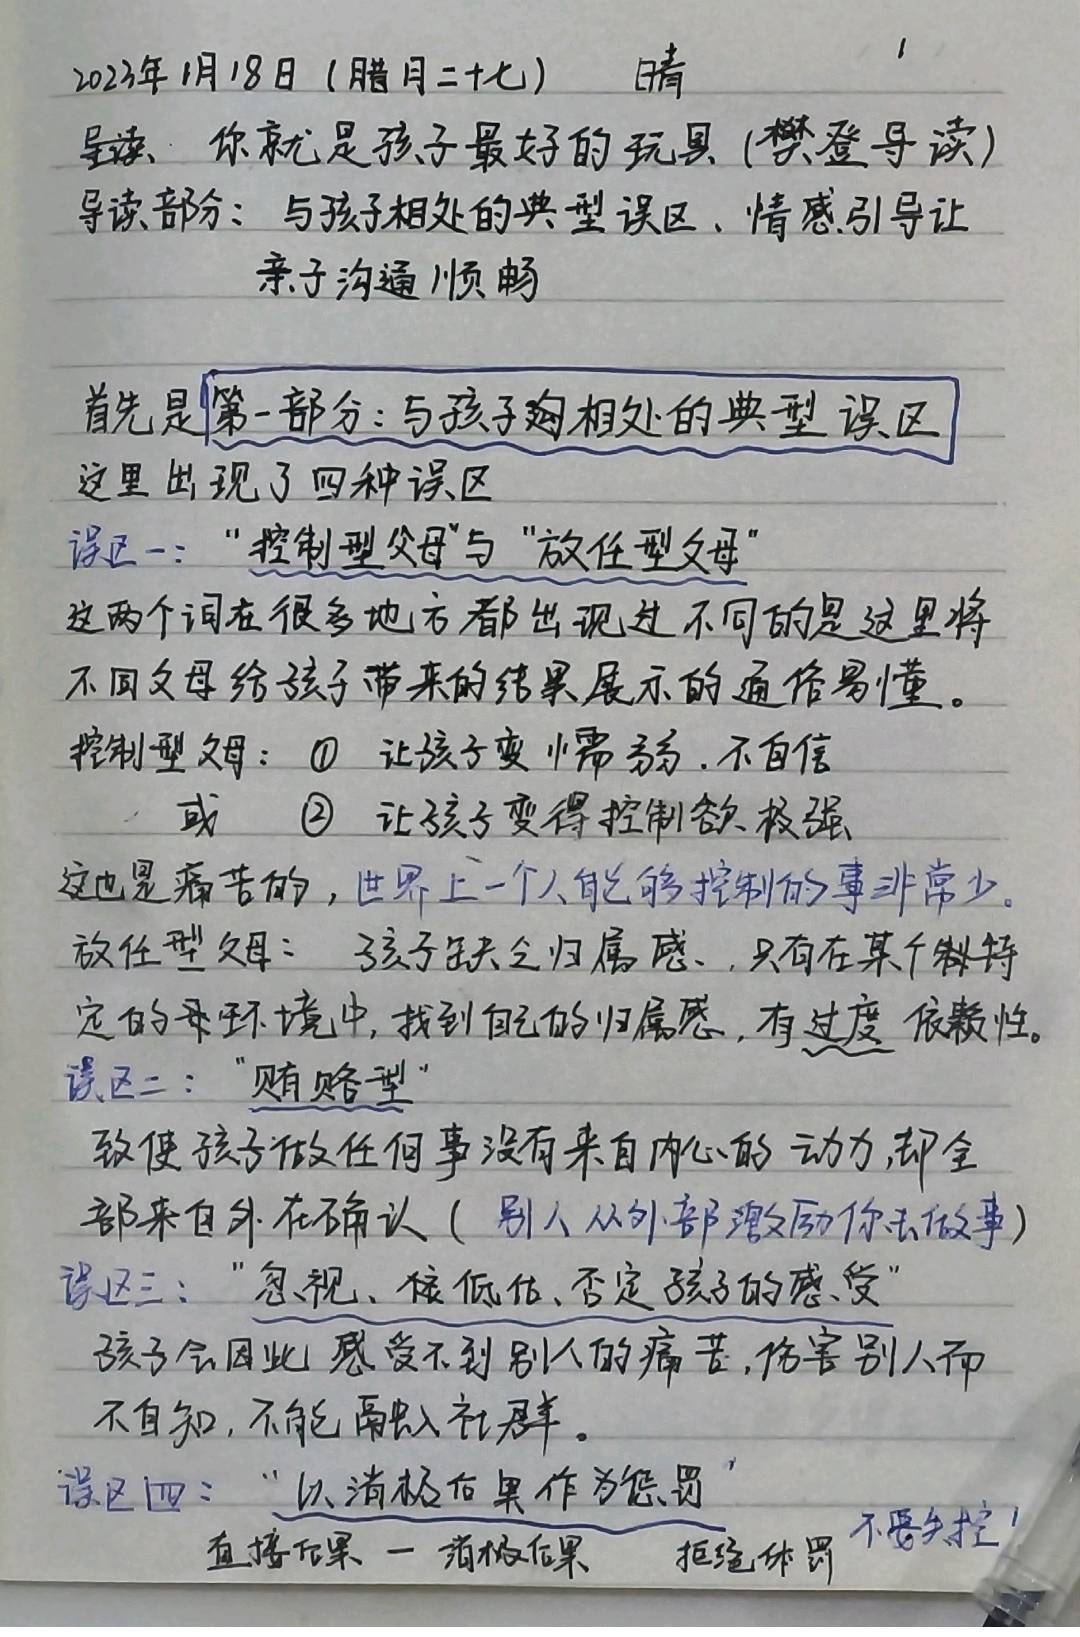 2023年1月18日（腊月二十七） 晴
导读、你就是孩子最好的玩具（樊登导读）
导读部分：与孩子相处的典型误区、情感引导让
亲子沟通顺畅
首先是第一部分：与孩子相处的典型误区
这里出现了四种误区
误区一：“控制型父母”与“放任型父母”
这两个词在很多地方都出现过不同的是这里将
不同父母给孩子带来的结果展示的通俗易懂。
控制型父母：① 让孩子变懦弱.不自信
或 ② 让孩子变得控制欲极强
这也是痛苦的，世界上一个人能够控制的事非常少。
放任型父母：孩子缺乏归属感、，只有在某个特
定的环境中，找到自己的归属感，有过度依赖性。
误区二：“贿赂型”
致使孩子做任何事没有来自内心的动力，却全
部来自外在确认（别人从外部激励你去做事）
误区三：“忽视、低估、否定孩子的感受”
孩子会因此感受不到别人的痛苦，伤害别人而
不自知，不能融入社群。
误区四：“以消极后果作为惩罚”
直接后果一消极后果 拒绝体罚 不要失控！